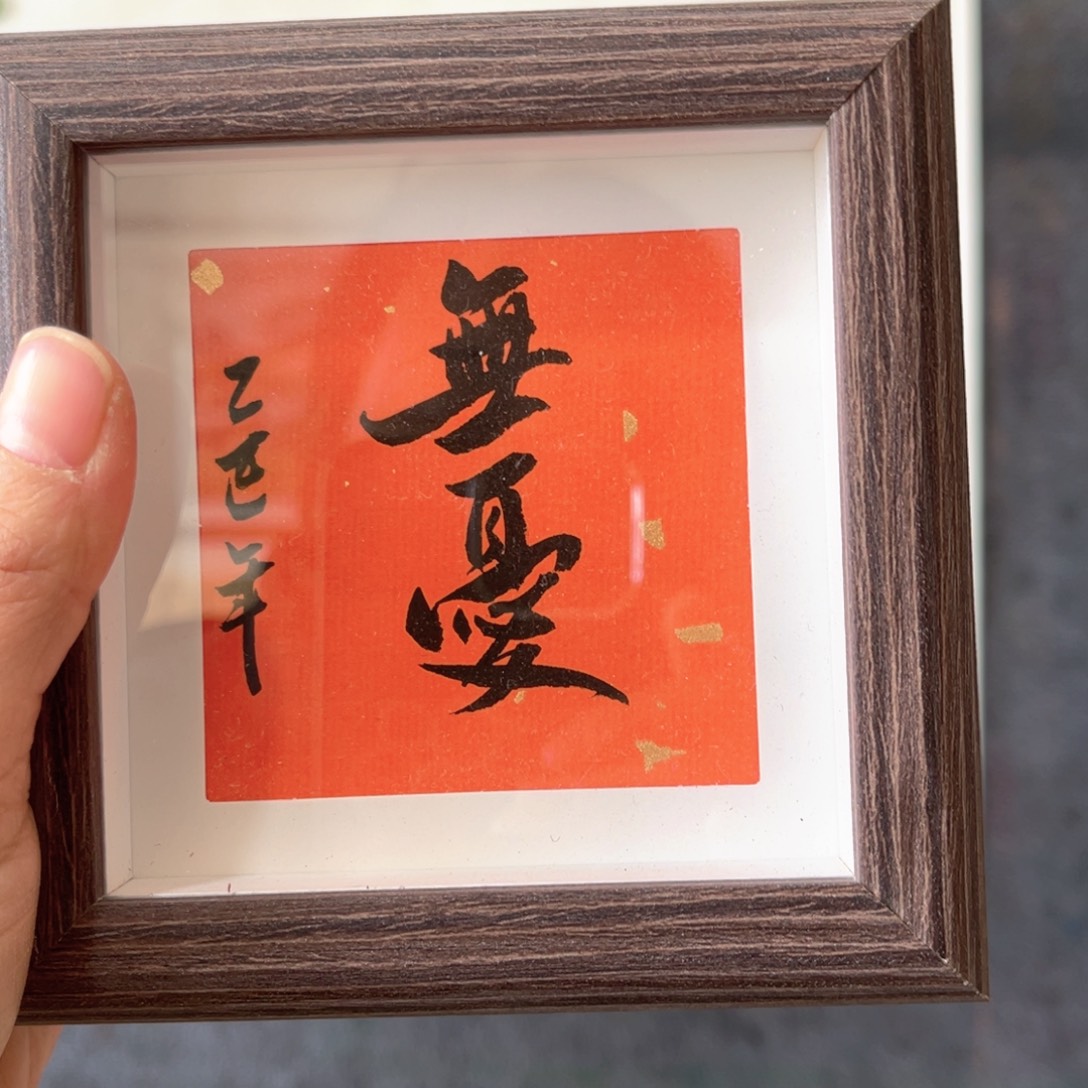 無憂
乙巳年